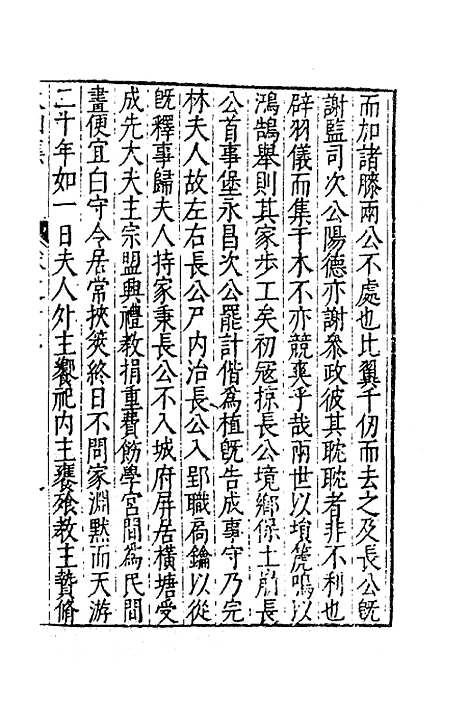 而加諸滕兩公不處也比翼千仞而去之及長公旣
謝監司次公陽德亦謝參政彼其耽耽者非不利也
辟羽儀而集千木不亦競爽乎哉兩世以塤箎鳴以
鴻鵠舉則其家步工矣初冦掠長公境鄉保土𨻶長
公首事堡永昌次公罷計偕爲植旣告成事守乃完
林夫人故左右長公尸內治長公入郢職扃鑰以從
旣釋事歸夫人持家秉長公不入城府屏居橫塘受
成先大夫主宗盟興禮教捐重費飭學宮間爲民間
畫便宜白守令居常挾筴終日不問家淵默而天游
二十年如一日夫人外主饗祀內主饔飱教主贄脩